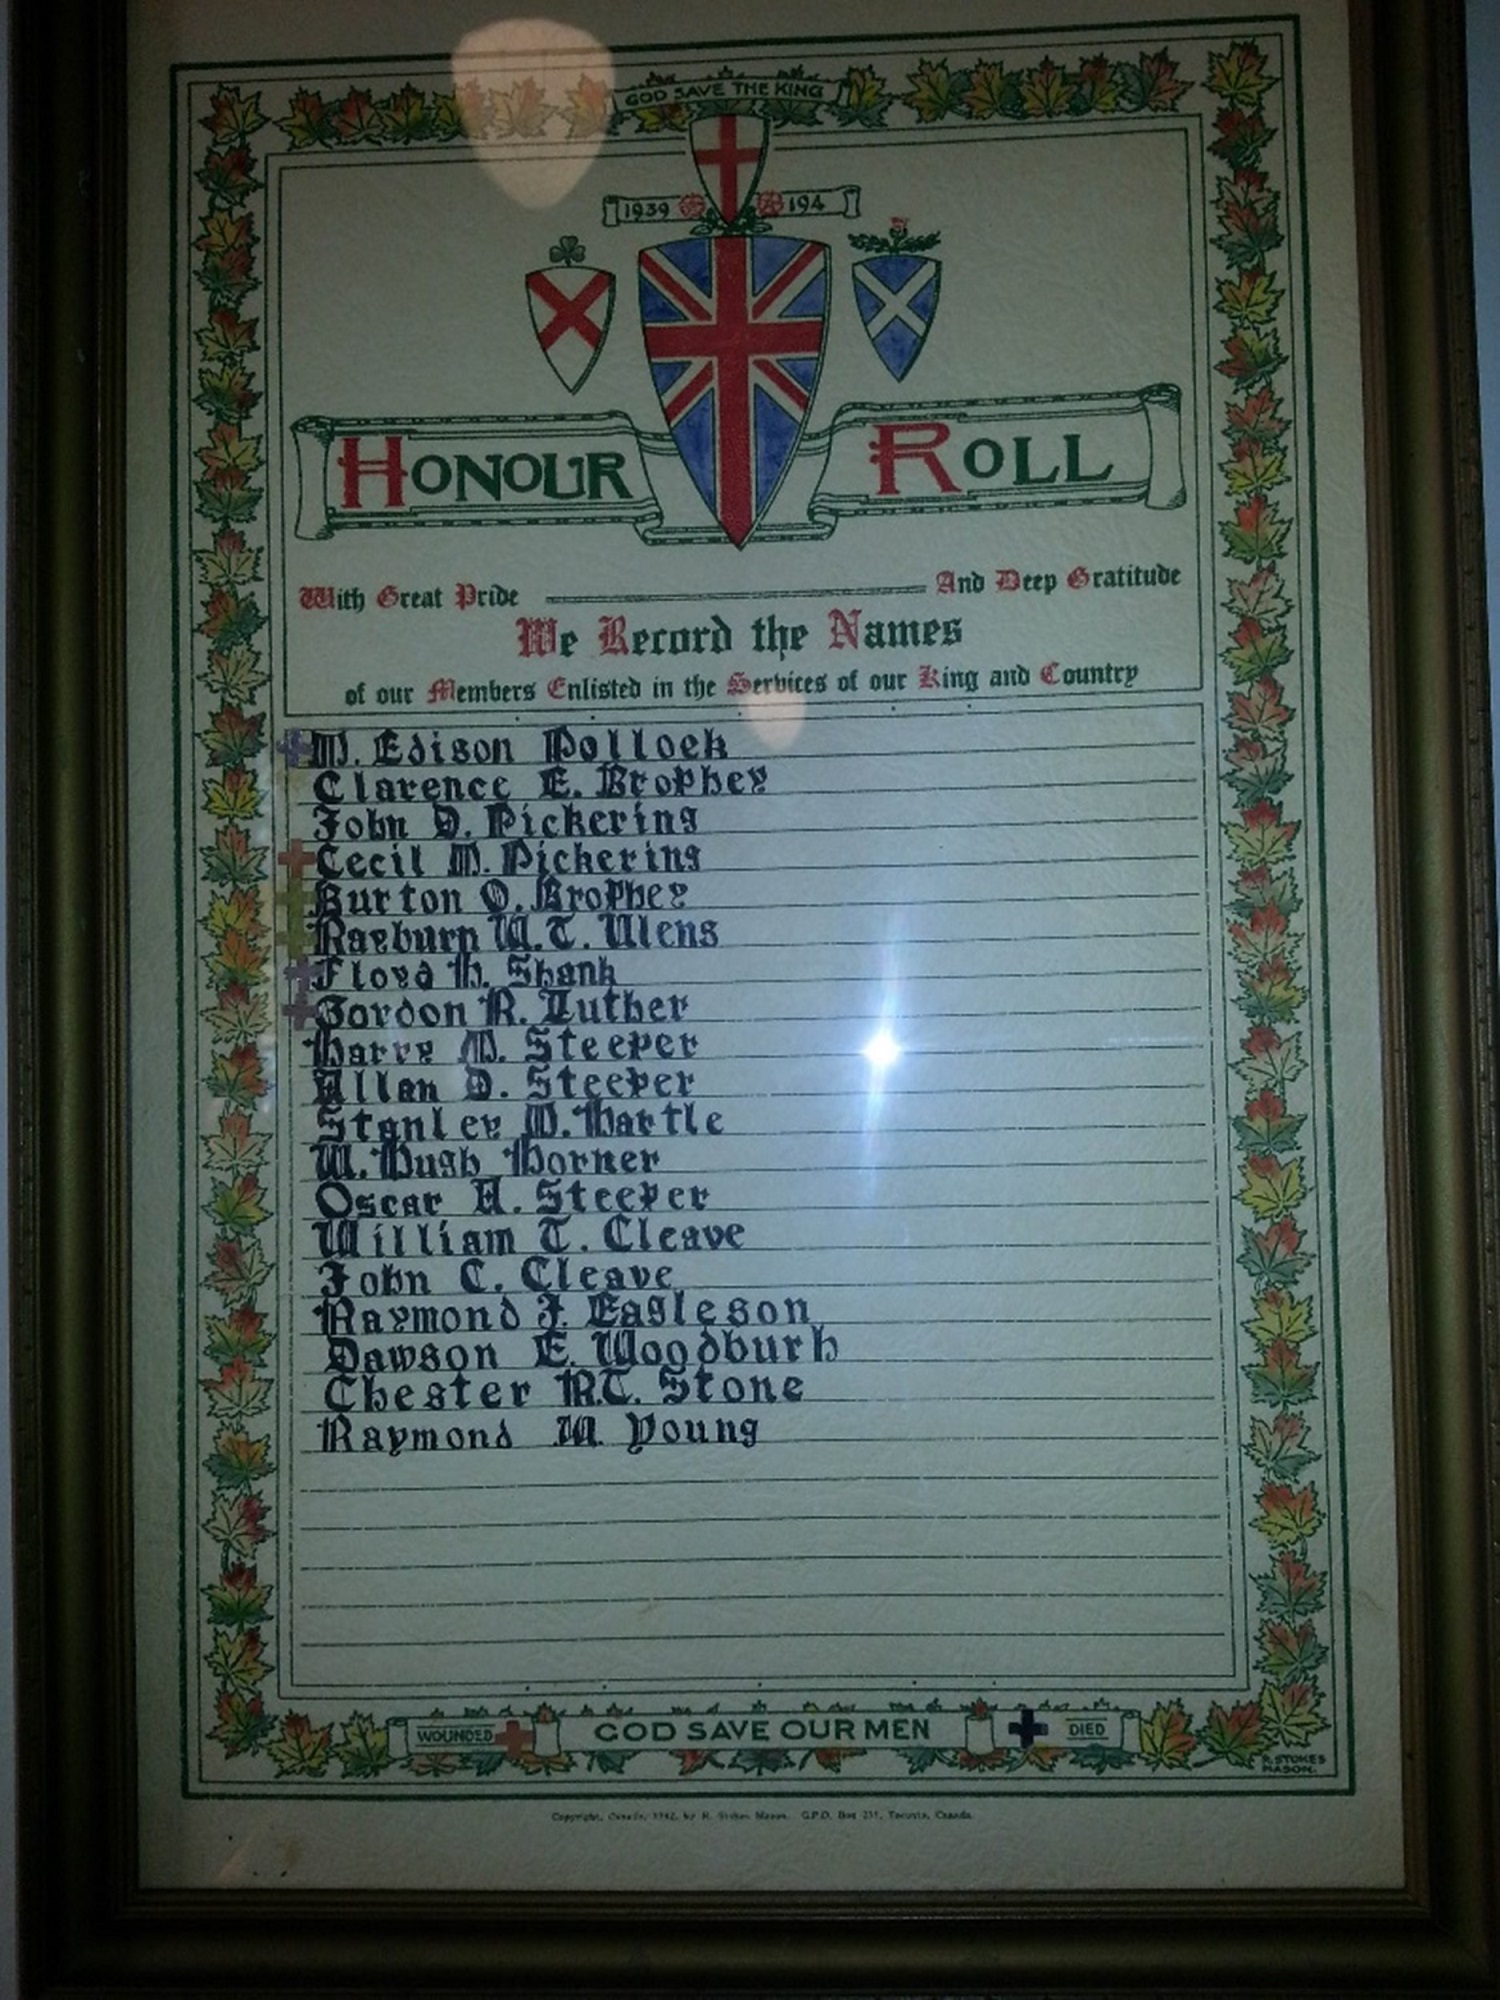 GOD SAVE THE KING
1939 194
HONOUR ROLL
With Great Pride And Deep Gratitude
We Record the Names
of our Members Enlisted in the Services of our King and Country
M. Edison Pollock
Clarence E. Brophey
John D. Pickering
Cecil M. Pickering
Burton O. Brophey
Rayburn W. T. Ulens
Floyd H. Shank
Gordon R. Luther
Harry M. Steeper
Allan D. Steeper
Stanley D. Hartle
W. Hugh Horner
Oscar A. Steeper
William T. Cleave
John C. Cleave
Raymond J. Eagleson
Dawson E. Woodburh
Chester R.T. Stone
Raymond W. Young
WOUNDED GOD SAVE OUR MEN DIED
R. STOKES
MASON.
Copyright, Canada, 1942, by R. Stokes Mason. G.P.O. Box 231, Toronto, Canada.